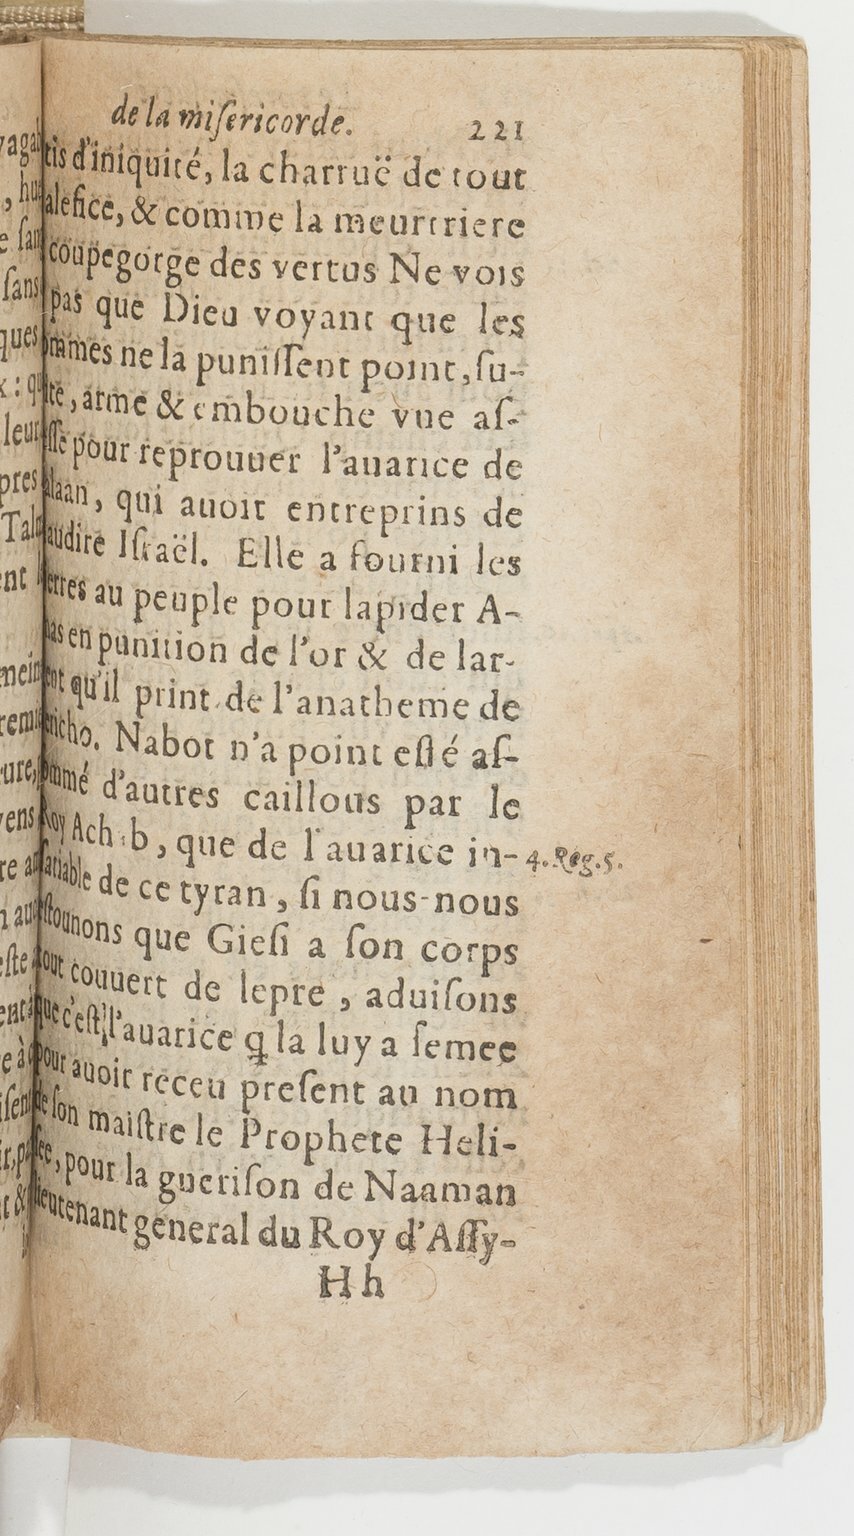 de la miſericorde. 221
tis d'iniquité, la charruë de tout
alefice, & comme la meurtriere
coupegorge des vertus Ne vois
pas que Dieu voyant que les
mmes ne la puniſſent point, ſu-
te, arme & embouche vne aſ-
ſſe pour reprouuer l'auarice de
laan, qui auoit entreprins de
audire Iſraël. Elle a fourni les
erres au peuple pour lapider A-
as en punition de l'or & de lar-
ent qu'il print de l'anatheme de
richo. Nabot n'a point eſté aſ-
ommé d'autres caillous par le
Roy Achab, que de l'auarice in-
4. Reg. 5.
ſatiable de ce tyran, ſi nous-nous
eſtounons que Gieſi a ſon corps
tout couuert de lepre, aduiſons
que c'eſt l'auarice q̃ la luy a ſemee
pour auoir receu preſent au nom
de ſon maiſtre le Prophete Heli-
ſee, pour la gueriſon de Naaman
lieutenant general du Roy d'Aſſy-
H h